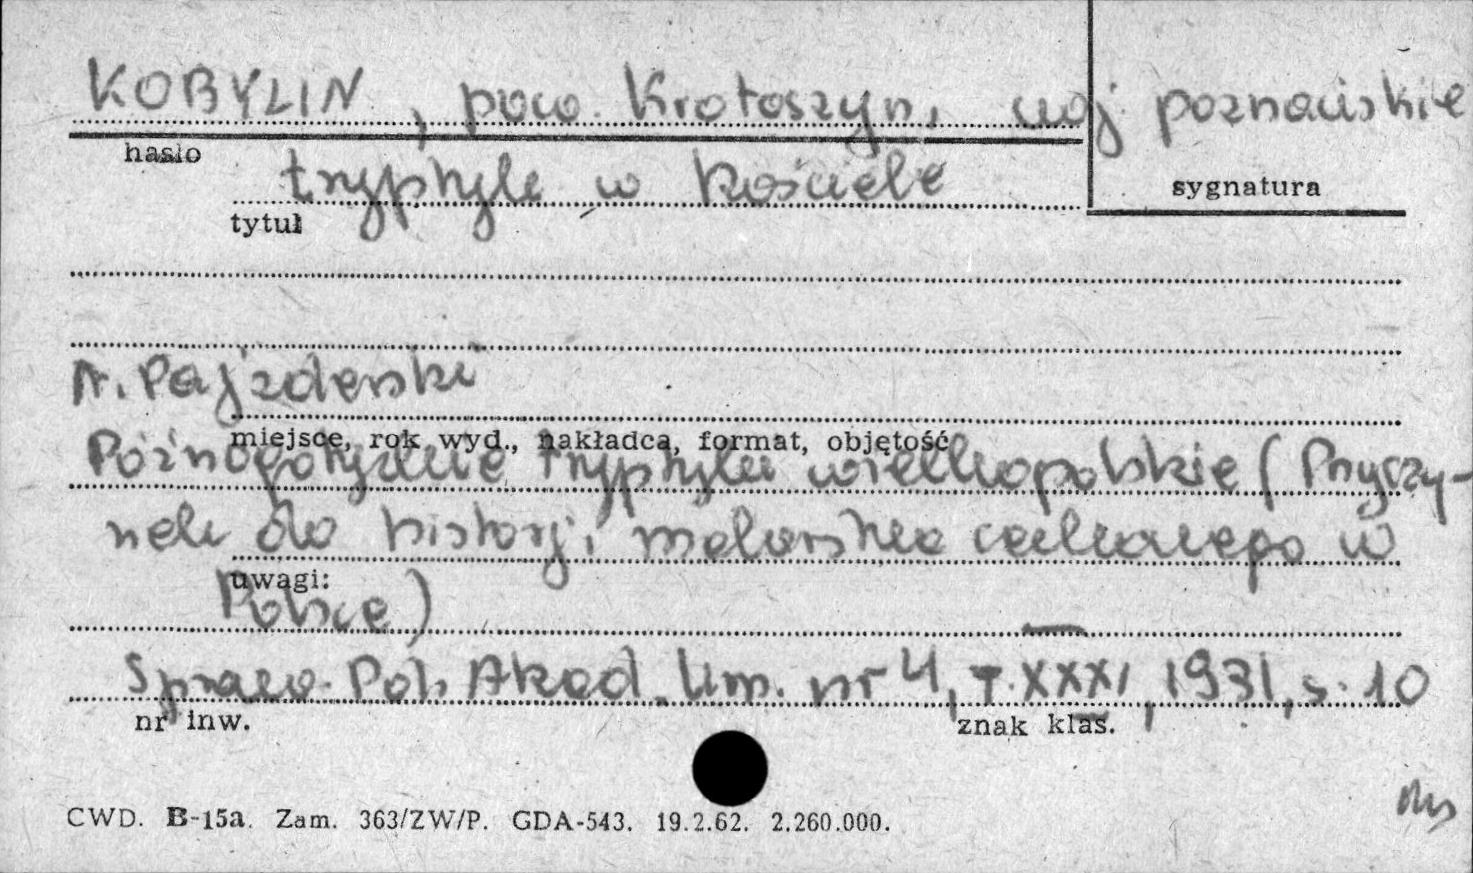 KOBYLIN, pow. Krotoszyn, woj poznańskie
hasło
tryptyk w kościele
sygnatura
tytuł
N. Pajzderski
miejsce, rok wyd., nakładca, format, objętość
Późnogotyckie tryptyki wielkopolskie (Przyczy-
nek do historji malarstwa cechowego w
uwagi:
Polsce)
Spraw. Pol. Akad. Um. nr 4, T. XXXVI, 1931, s. 10
nr inw.
znak klas.
CWD. B-15a. Zam. 363/ZW/P. GDA-543. 19.2.62. 2.260.000.